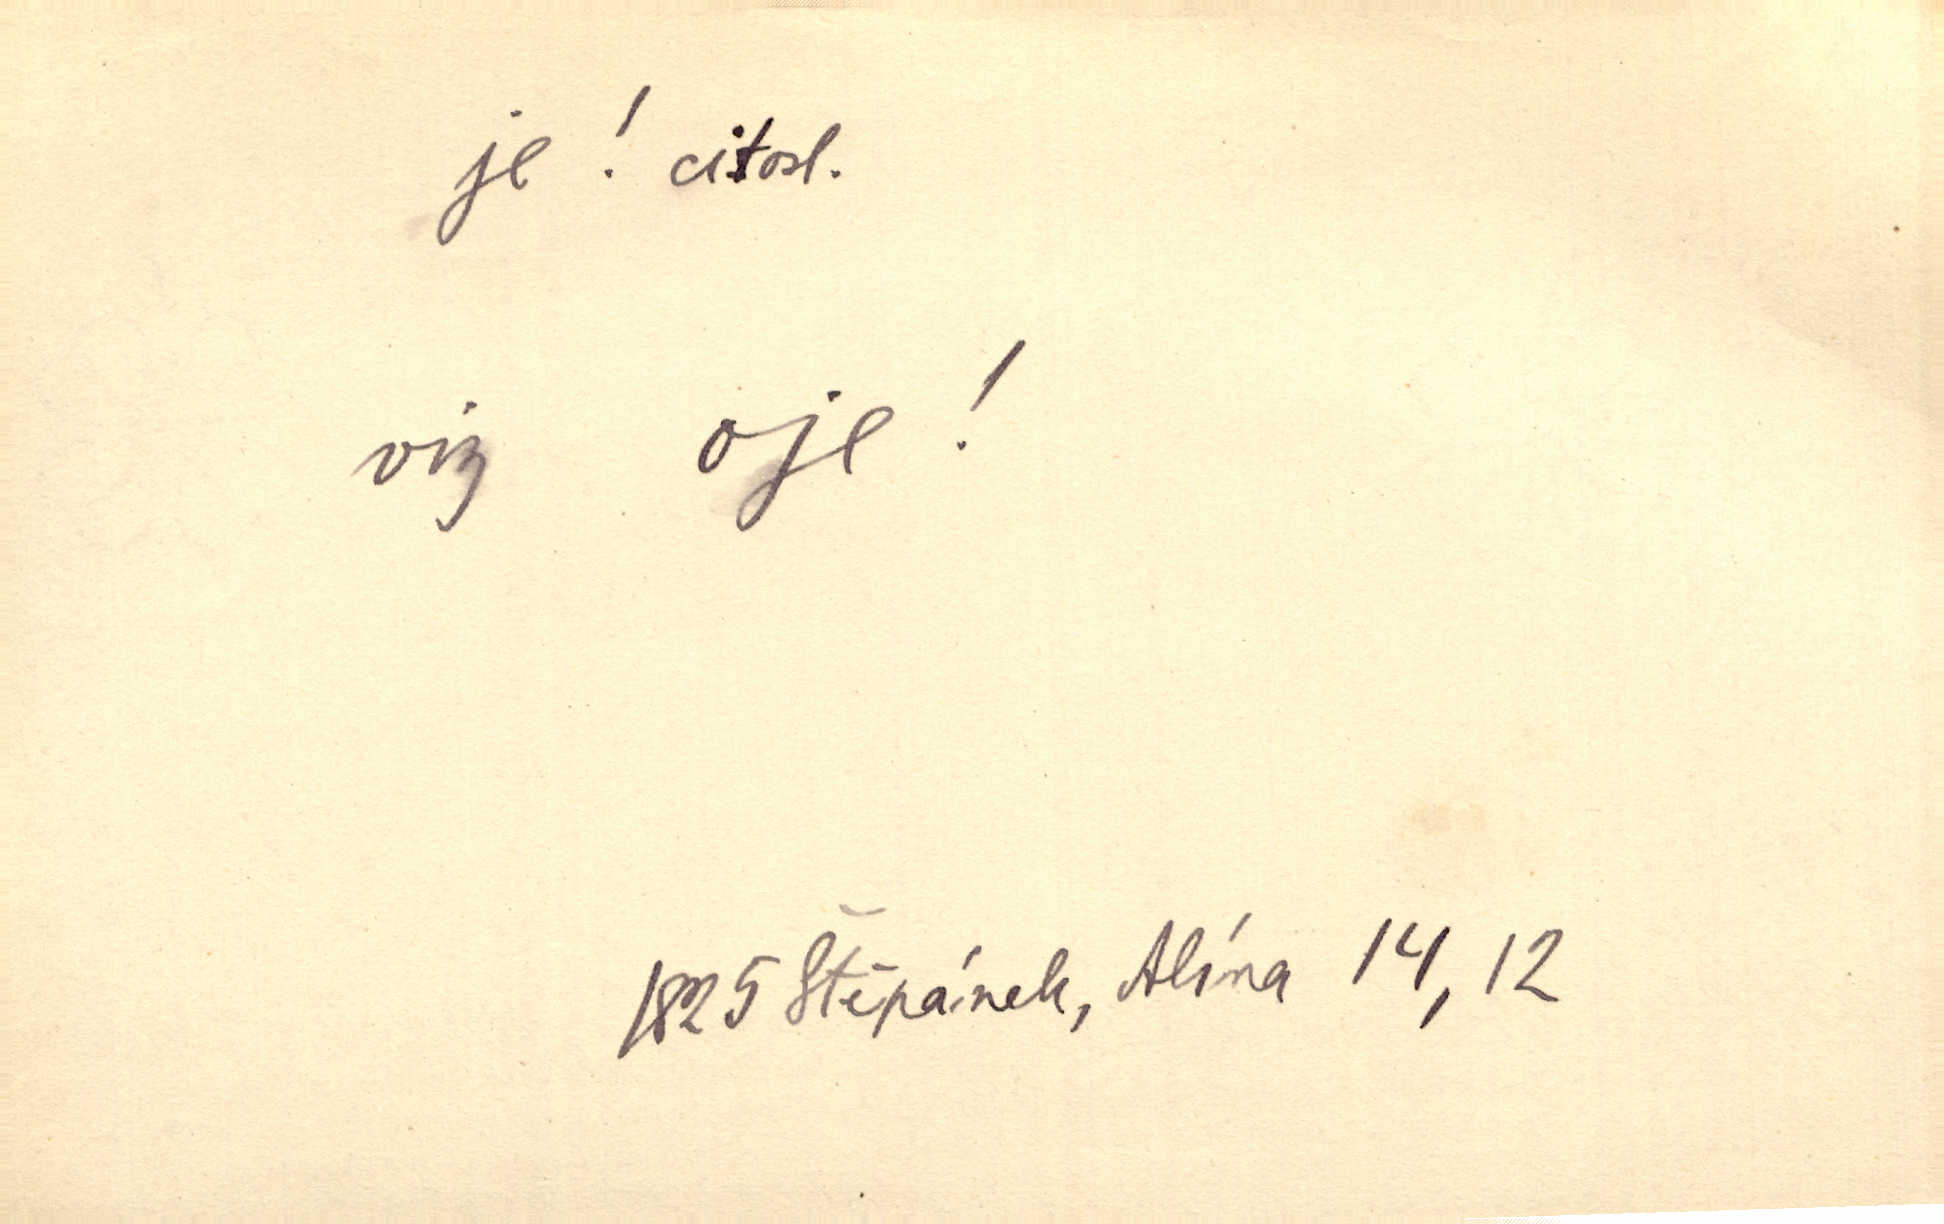 je! citosl.
viz oje!
1825 Štěpánek, Alína 14, 12